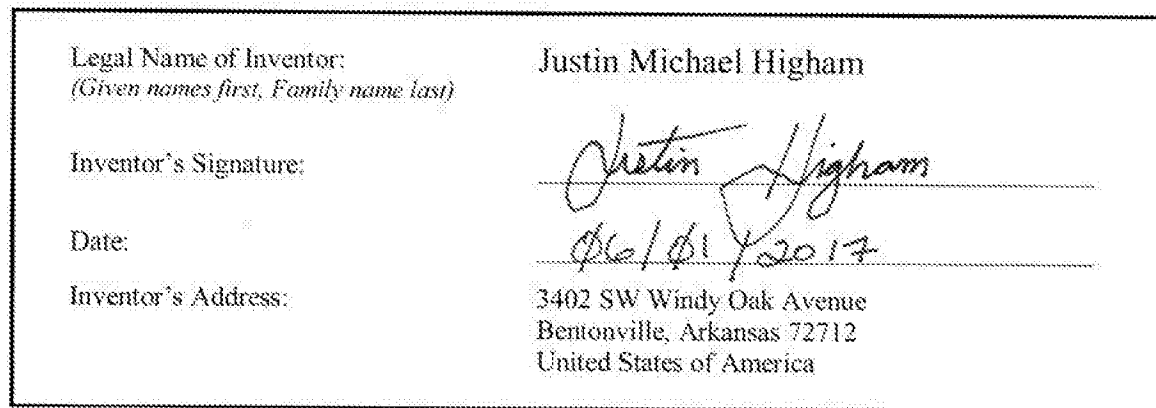 Legal Name of Inventor: Justin Michael Higham
(Given names first, Family name last)
Inventor's Signature: Justin Higham
Date: 06/01/2017
Inventor's Address: 3402 SW Windy Oak Avenue
Bentonville, Arkansas 72712
United States of America